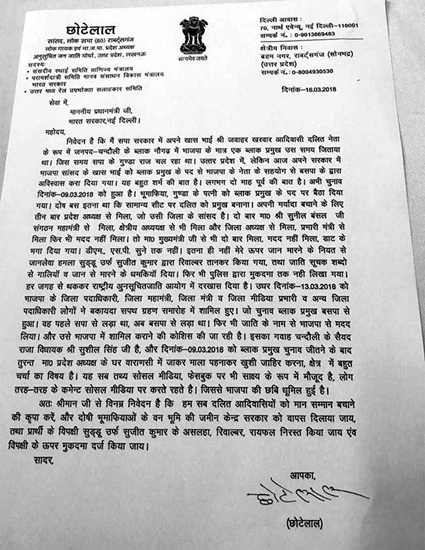 छोटेलाल
सांसद, लोक सभा (80) राबर्ट्सगंज
लोक गायक एवं भा.ज.पा. प्रदेश अध्यक्ष
अनुसूचित जन जाति मोर्चा, उत्तर प्रदेश, लखनऊ
सदस्य:
संसदीय स्थाई समिति वाणिज्य मंत्रालय
परामर्शदात्री समिति मानव संसाधन विकास मंत्रालय
भारत सरकार
उत्तर मध्य रेल उपभोक्ता सलाहकार समिति
दिल्ली आवास :
70, नार्थ एवेन्यू, नई दिल्ली-110001
सम्पर्क नं. : 0-9013869483
क्षेत्रीय निवास :
ब्रहम नगर, राबर्ट्सगंज (सोनभद्र)
(उत्तर प्रदेश)
सम्पर्क नं. : 0-8004930530
दिनांक-16.03.2018
सेवा में,
माननीय प्रधानमंत्री जी,
भारत सरकार,नई दिल्ली।
महोदय,
निवेदन है कि मैं सपा सरकार में अपने खास भाई श्री जवाहर खरवार आदिवासी दलित नेता
के रूप में जनपद-चन्दौली के ब्लाक नौगढ़ में भाजपा के मात्र एक ब्लाक प्रमुख उस समय जिताया
था। जिस समय सपा के गुण्डा राज चल रहा था। उत्तर प्रदेश में, लेकिन आज अपने सरकार में
भाजपा सांसद के खास भाई को ब्लाक प्रमुख के पद से भाजपा के नेता के सहयोग से बसपा के द्वारा
अविस्वास करा दिया गया। यह बहुत शर्म की बात है। लगभग दो माह पूर्व की बात है। अभी चुनाव
दिनांक-09.03.2018 को हुआ है। भूमाफिया, गुण्डा के पत्नी को ब्लाक प्रमुख के पद पर बैठा दिया
गया। दोष बस इतना था कि सामान्य सीट पर दलित को प्रमुख बनाना। अपनी मर्यादा बचाने के लिए
तीन बार प्रदेश अध्यक्ष से मिला, जो उसी जिला के सांसद है। दो बार मा0 श्री सुनील बंसल जी
संगठन महामंत्री से मिला, क्षेत्रीय अध्यक्ष से भी मिला और जिला अध्यक्ष से मिला, प्रभारी मंत्री से
मिला फिर भी मदद नहीं मिला। तो मा0 मुख्यमंत्री जी से भी दो बार मिला, मदद नही मिला, डाट के
भगा दिया गया। डीएम., एस.पी. सुने तक नहीं। इतना ही नहीं मेरे ऊपर जान मारने के नियत से
जानलेवा हमला सुड्डू उर्फ सुजीत कुमार द्वारा रिवाल्बर तानकर किया गया, तथा जाति सूचक शब्दो
से गालियॉ व जान से मारने के धमकियाँ दिया। फिर भी पुलिस द्वारा मुकदमा तक नही लिखा गया।
हर जगह से थककर राष्ट्रीय अनुसूचितजाति आयोग में दरखास दिया है। उधर दिनांक-13.03.2018 को
भाजपा के जिला पदाधिकारी, जिला महामंत्री, जिला मंत्री व जिला मीडिया प्रभारी व अन्य जिला
पदाधिकारी लोगों ने बकायदा सपथ ग्रहण समारोह में शामिल हुए। जो चुनाव ब्लाक प्रमुख बसपा से
हुआ। वह पहले सपा से लड़ा था, अब बसपा से लड़ा था। फिर भी जाति के नाम से भाजपा से मदद
लिया। और उसे भाजपा में शामिल कराने की कोशिश की जा रही है। इसका गवाह चन्दौली के सैयद
राजा विधायक श्री सुशील सिंह जी है, और दिनांक-09.03.2018 को ब्लाक प्रमुख चुनाव जीतने के बाद
तुरन्त मा0 प्रदेश अध्यक्ष के घर वाराणसी में जाकर माला पहनाकर खुशी जाहिर करना, क्षेत्र में बहुत
चर्चा का विषय है। यह सब तथ्य सोसल मीडिया, फेसबुक पर भी साक्ष्य के रूप में मौजूद है, लोग
तरह-तरह के कमेन्ट सोसल मीडिया पर करते रहते है। जिससे भाजपा की छबि धूमिल हुई है।
अतः श्रीमान जी से विनम्र निवेदन है कि हम सब दलित आदिवासियों को मान सम्मान बचाने
की कृपा करें, और दोषी भूमाफियाओ के वन भूमि की जमीन केन्द्र सरकार को वापस दिलाया जाय,
तथा प्रार्थी के विपक्षी सुड्डू उर्फ सुजीत कुमार के असलहा, रिवाल्बर, रायफल निरस्त किया जाय एंव
विपक्षी के ऊपर मुकदमा दर्ज किया जाय।
सादर,
आपका,
छोटेलाल
(छोटेलाल)